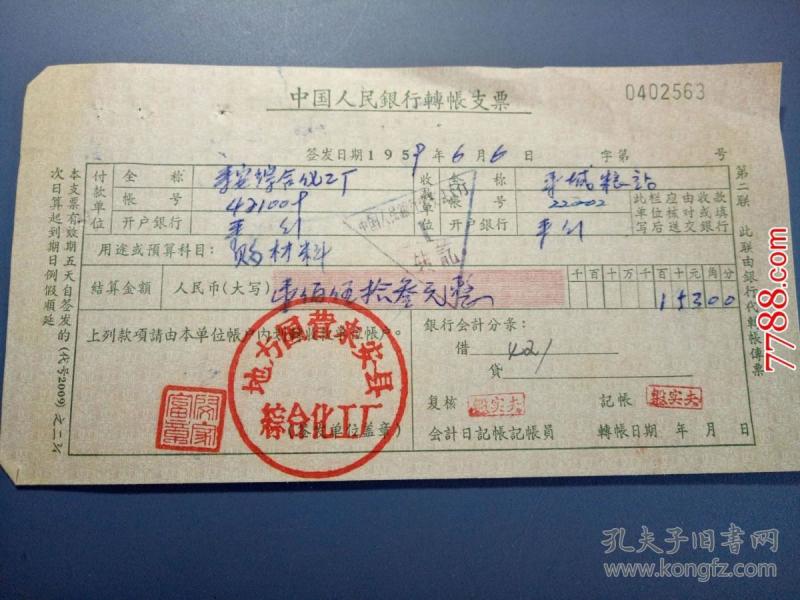 中国人民銀行轉帳支票
0402563
签发日期1959年6月6日 字第 号
付款单位
全称 来安綜合化工厂
帐号 421009
开户銀行 来分
收款单位
全称 来城粮站
帐号 22002
开户銀行 来分
此栏应由收款
单位核对或填
写后送交銀行
用途或预算科目: 购材料
结算金额 人民币(大写) 壹佰伍拾叁元整
千百十万千百十元角分
15300
上列款項請由本单位帐户内
收款单位帐户。
(签发单位盖章)
銀行会計分录:
借 421
貸
复核
記帳
会計日記帳記帳員 轉帳日期 年 月 日
本支票有效期五天自签发的
次日算起到期日例假顺延
(代号2009)之二
第二联 此联由銀行代轉帳傳票
地方国营来安县
綜合化工厂
中国人民銀行
转訖
7788.com
孔夫子旧书网
www.kongfz.com